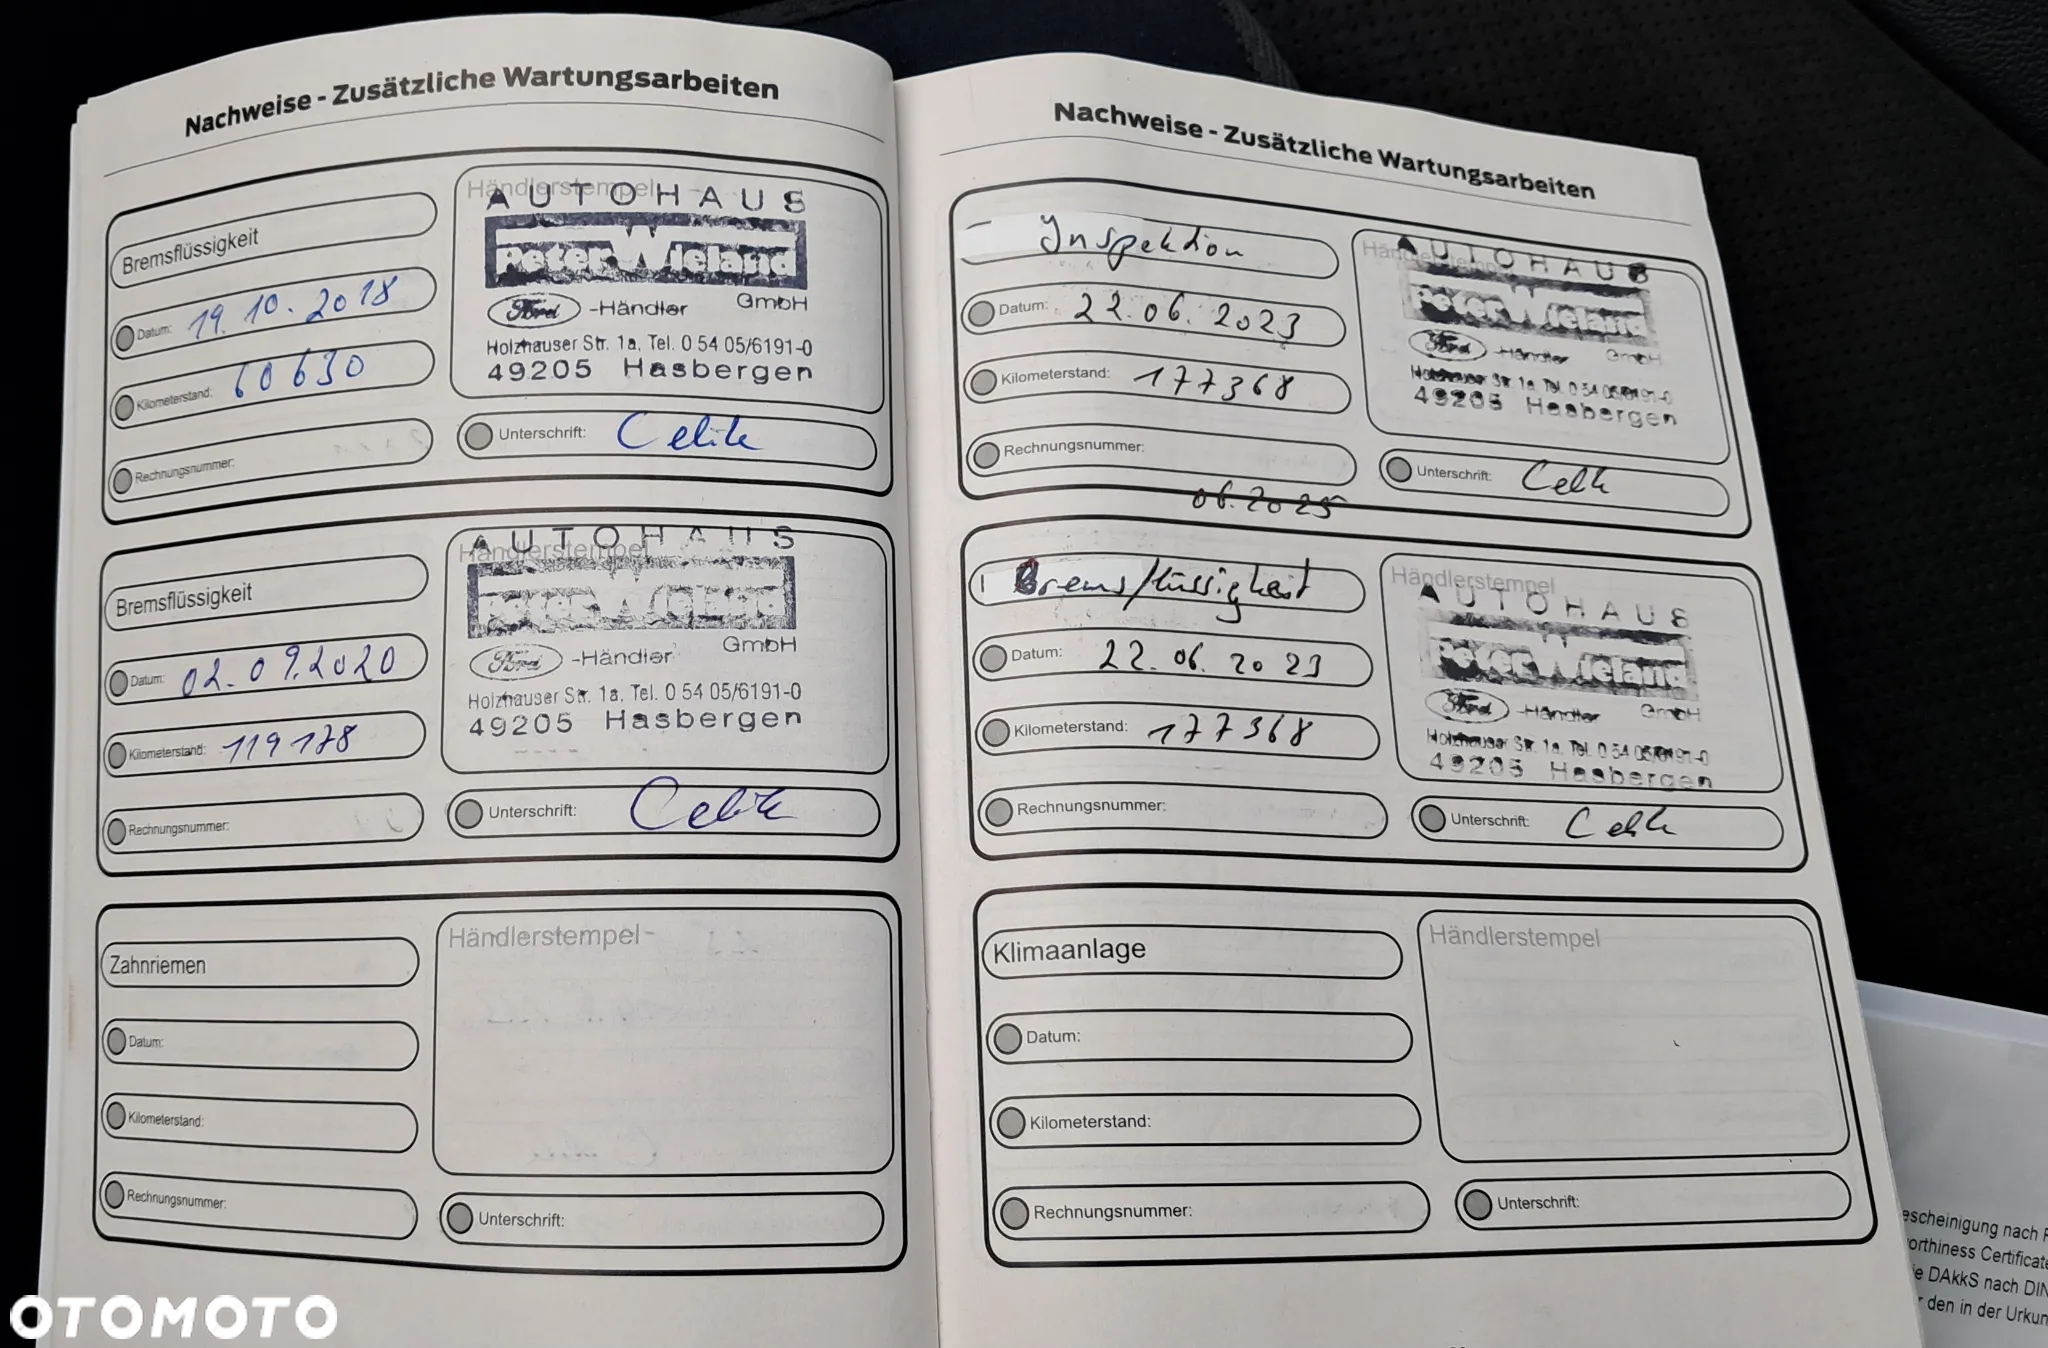 Nachweise - Zusätzliche Wartungsarbeiten
Bremsflüssigkeit
Datum: 19.10.2018
Kilometerstand: 60630
Rechnungsnummer:
Händlerstempel
AUTOHAUS
Peter Wieland
GmbH
Ford -Händler
Holzhauser Str. 1a, Tel. 0 54 05/6191-0
49205 Hasbergen
Unterschrift: Celik
Bremsflüssigkeit
Datum: 02.09.2020
Kilometerstand: 119178
Rechnungsnummer:
Händlerstempel
AUTOHAUS
Peter Wieland
GmbH
Ford -Händler
Holzhauser Str. 1a, Tel. 0 54 05/6191-0
49205 Hasbergen
Unterschrift: Celik
Zahnriemen
Datum:
Kilometerstand:
Rechnungsnummer:
Händlerstempel
Unterschrift:
Nachweise - Zusätzliche Wartungsarbeiten
Inspektion
Datum: 22.06.2023
Kilometerstand: 177368
Rechnungsnummer:
AUTOHAUS
Peter Wieland
Ford -Händler GmbH
Holzhauser Str. 1a, Tel. 0 54 05/6191-0
49205 Hasbergen
Unterschrift: Celik
06.2025
Bremsflüssigkeit
Datum: 22.06.2023
Kilometerstand: 177368
Rechnungsnummer:
Händlerstempel
AUTOHAUS
Peter Wieland
Ford -Händler GmbH
Holzhauser Str. 1a, Tel. 0 54 05/6191-0
49205 Hasbergen
Unterschrift: Celik
Klimaanlage
Datum:
Kilometerstand:
Rechnungsnummer:
Händlerstempel
Unterschrift:
escheinigung nach
orthiness Certificate
DAkkS nach DIN
den in der
OTOMOTO